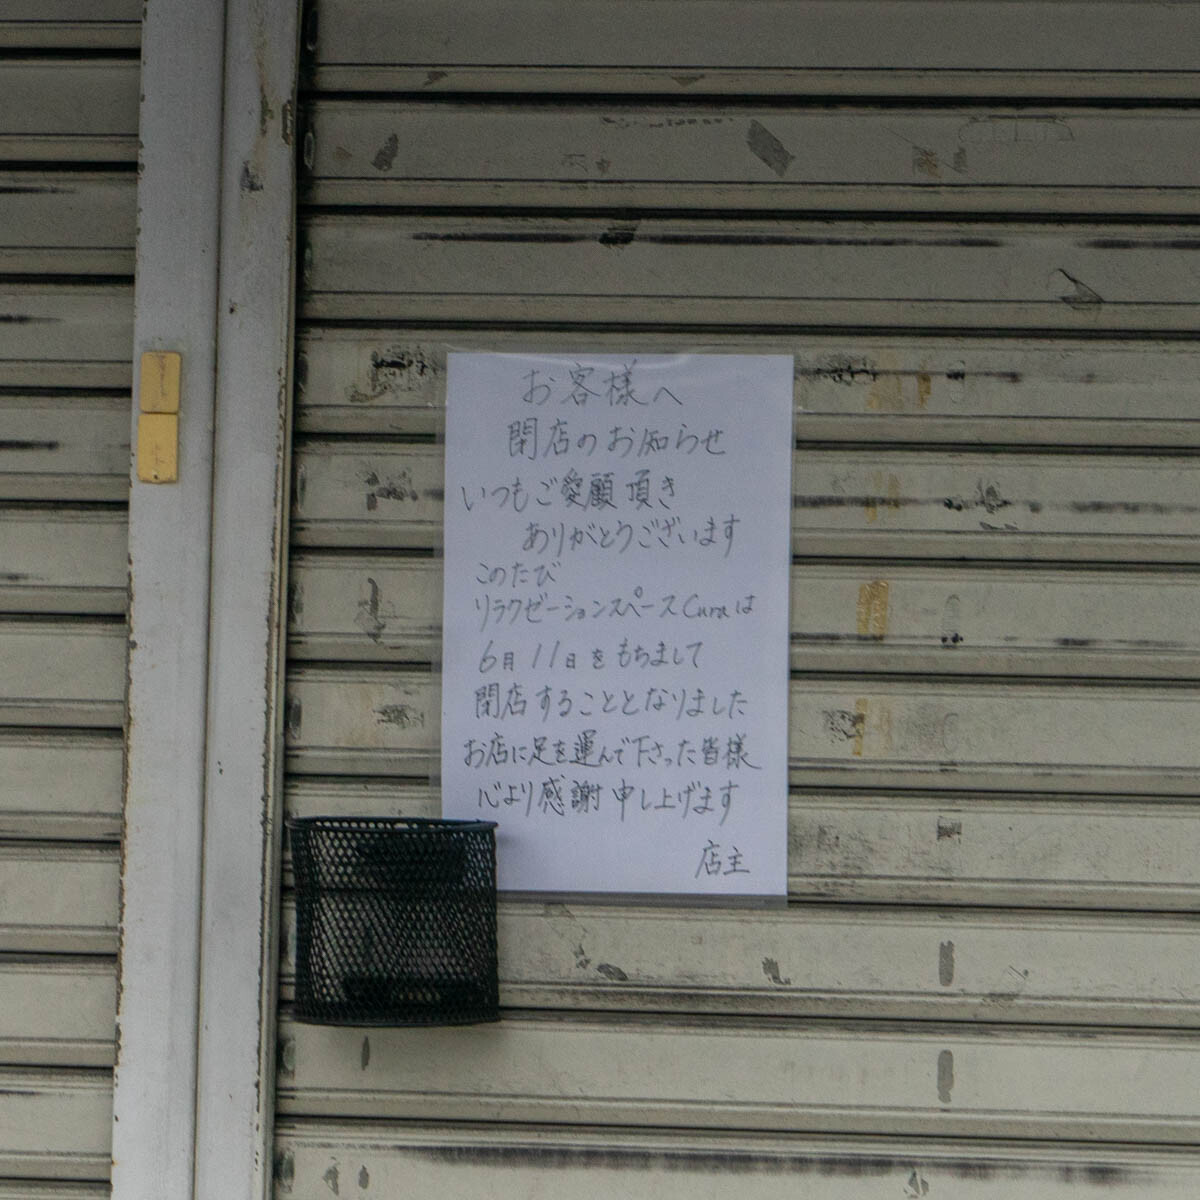 お客様へ
閉店のお知らせ
いつもご愛顧頂き
ありがとうございます
このたび
リラクゼーションスペースCuraは
6月11日をもちまして
閉店することとなりました
お店に足を運んで下さった皆様
心より感謝申し上げます
店主